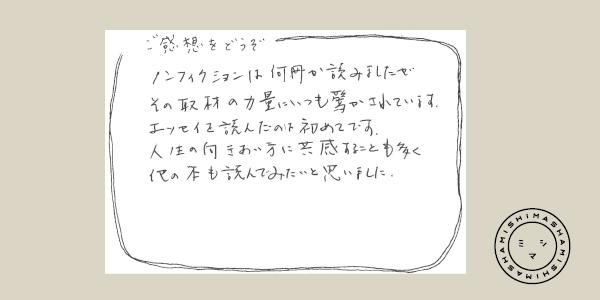 ご感想をどうぞ
ノンフィクションは何冊か読みましたが
その取材の力量にいつも驚かされています。
エッセイを読んだのは初めてです。
人生の向きあい方に共感することも多く
他の本も読んでみたいと思いました。
MISHIMASHAMISHIMASHAMISHIMASHA
ミシマ